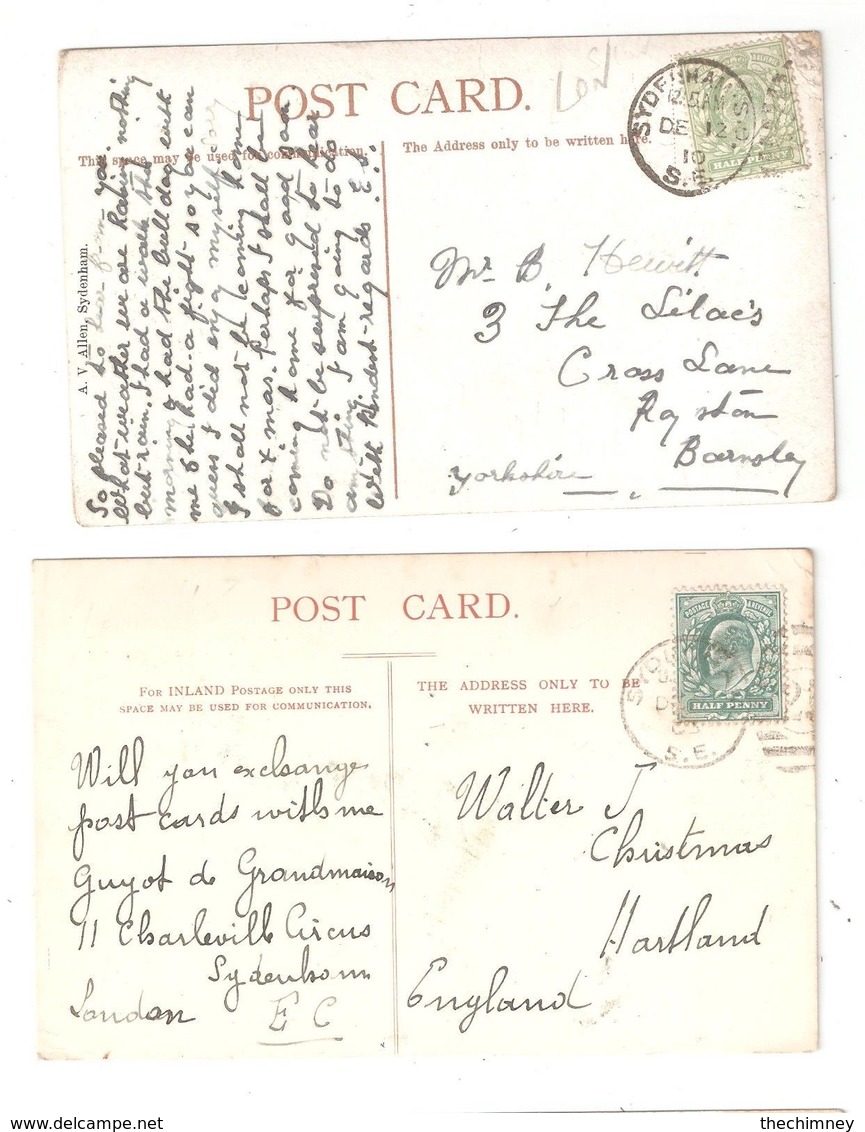 POST CARD.
This space may be used for communication.
The Address only to be written here.
LON
SYDENHAM S.O.
12.15AM
DE 12
10
S.E.
HALFPENNY
A. V. Allen, Sydenham.
So pleased to hear from you.
What weather we are having nothing
but rain. I had a walk this
morning & had the bulldog with
me & he had a fight so you can
guess I did enjoy myself
I shall not be coming home
for Xmas. Perhaps I shall be
coming home for good soon
Do not be surprised to hear
anything I am going to do
With Kindest regards E.
Mr B. Hewitt
3 The Lilac's
Cross Lane
Royston
Barnsley
Yorkshire
POST CARD.
FOR INLAND POSTAGE ONLY THIS
SPACE MAY BE USED FOR COMMUNICATION.
THE ADDRESS ONLY TO BE
WRITTEN HERE.
POSTAGE & REVENUE
HALF PENNY
S.E.
Will you exchange
post cards with me
Guyot de Grandmaison
11 Charleville Circus
Sydenham
London E C
Walter J
Christmas
Hartland
England
thechimney